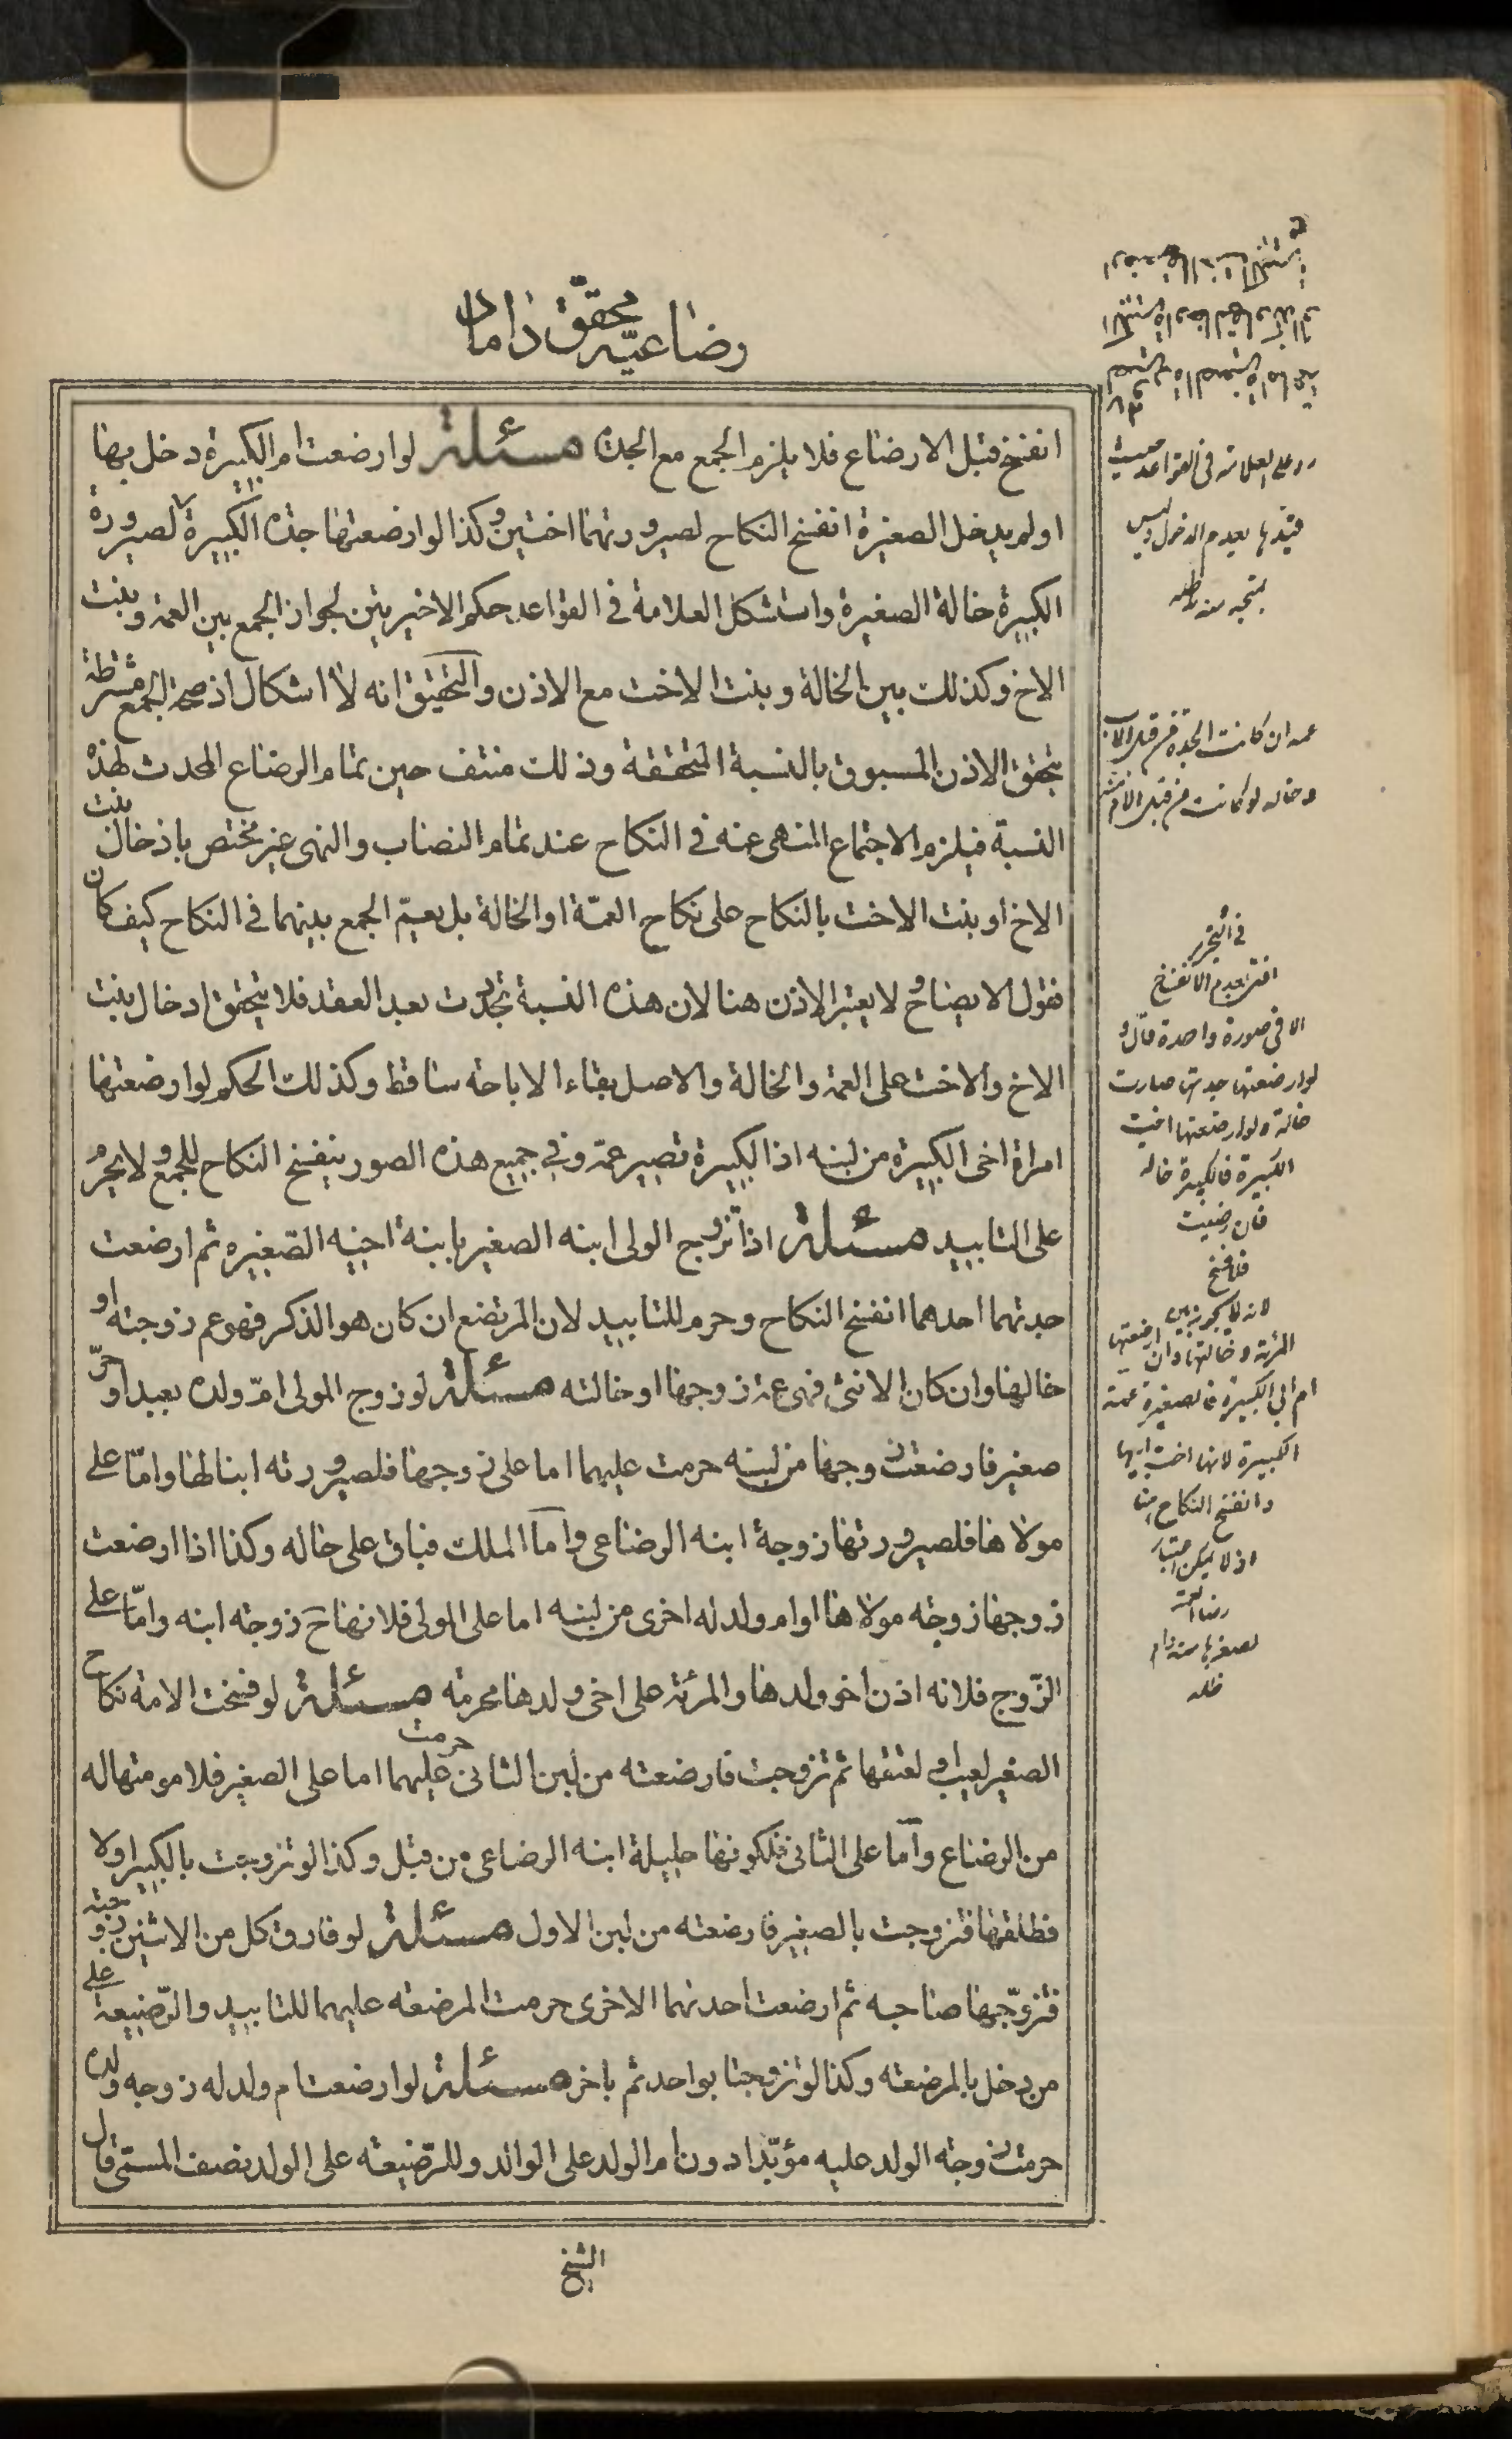 رضاعيّه محقّق داماد
انفسخ قبل الارضاع فلا يلزم الجمع مع الجدة مسئلة لو ارضعت ام الكبيرة دخل بها
او لم يدخل الصغيرة انفسخ النكاح لصيرورتهما اختين وكذا لو ارضعتها جدة الكبيرة لصيرورة
الكبيرة خالة الصغيرة واستشكل العلامة في القواعد حكم الاخيرتين لجواز الجمع بين العمه وبنت
الاخ وكذلك بين الخالة وبنت الاخت مع الاذن والتحقيق انه لا اشكال اذ صحة الجمع مشروطة
بتحقق الاذن المسبوق بالنسبة المتحققة وذلك منتف حين تمام الرضاع المحدث لهذه
النسبة فيلزم الاجتماع المنهى عنه في النكاح عند تمام النصاب والنهى غير مختص باذخال بنت
الاخ او بنت الاخت بالنكاح على نكاح العمّة او الخالة بل يعمّ الجمع بينهما في النكاح كيف كان
فقول الايضاح لا يعتبر الاذن هنا لان هذه النسبة تجددت بعد العقد فلا يتحقق ادخال بنت
الاخ والاخت على العمه والخالة والاصل بقاء الاباحه ساقط وكذلك الحكم لو ارضعتها
امراة اخى الكبيرة من لبنه اذ الكبيرة تصير عمّه وفي جميع هذه الصور ينفسخ النكاح للجمع ولا يحرم
على التابيد مسئلة اذا تزوج الولى ابنه الصغير بابنة اخيه الصّغيره ثم ارضعت
جدتهما احدهما انفسخ النكاح وحرم للتابيد لان المرتضع ان كان هو الذكر فهو عم زوجته او
خالها وان كان الانثى فهى عمة زوجها او خالته مسئلة لو زوج المولى امّ ولده بعبد او حرّ
صغير فارضعت زوجها من لبنه حرمت عليهما اما على زوجها فلصيرورته ابنا لها وامّا على
مولاها فلصيرورتها زوجة ابنه الرضاعى وامّا الملك فباق على حاله وكذا اذا ارضعت
زوجها زوجته مولاها او ام ولد له اخرى من لبنه اما على المولى فلانها ح زوجته ابنه وامّا على
الزّوج فلانه اذن اخو ولدها والمرئة على اخى ولدها محرمة مسئلة لو فسخت الامة نكاح
الصغير لعيب او لعتقها ثم تزوجت فارضعته من لبن الثانى حرمت عليهما اما على الصغير فلامومتها له
من الرضاع وامّا على الثانى فلكونها حليلة ابنه الرضاعى من قبل وكذا لو تزوجت بالكبير اولا
فطلقها فتزوجت بالصغير فارضعته من لبن الاول مسئلة لو فارق كل من الاثنين زوجته
فتزوّجها صاحبه ثم ارضعت احدتهما الاخرى حرمت المرضعته عليهما للتابيد والرّضيعة على
من دخل بالمرضعته وكذا لو تزوجتا بواحد ثم باخر مسئلة لو ارضعت ام ولد له زوجه ولده
حرمت زوجته الولد عليه مؤبّدا دون ام الولد على الوالد وللرّضيعته على الولد نصف المسمّى قال
الشيخ
رد على العلامة في القواعد حيث
قيّدها بعدم الدخول وليس
بمتجه منه ظله
عمه ان كانت الجدة من قبل الاب
وخاله لو كانت من قبل الام
في التحرير
افتى بعدم الانفسخ
الا في صورة واحدة قال و
لو ارضعتها جدتها صارت
خالة ولو ارضعتها اخت
الكبيرة فالكبيرة خاله
فان رضيت
فلا فسخ
لانه يجوز
المرئة وخالتها وان ارضعتها
ام ابى الكبيرة فالصغيرة عمة
الكبيرة لانها اخت ابيها
وانفسخ النكاح
اذ لا يمكن اعتبار
رضا العمة
لصغرها منه دام
ظله